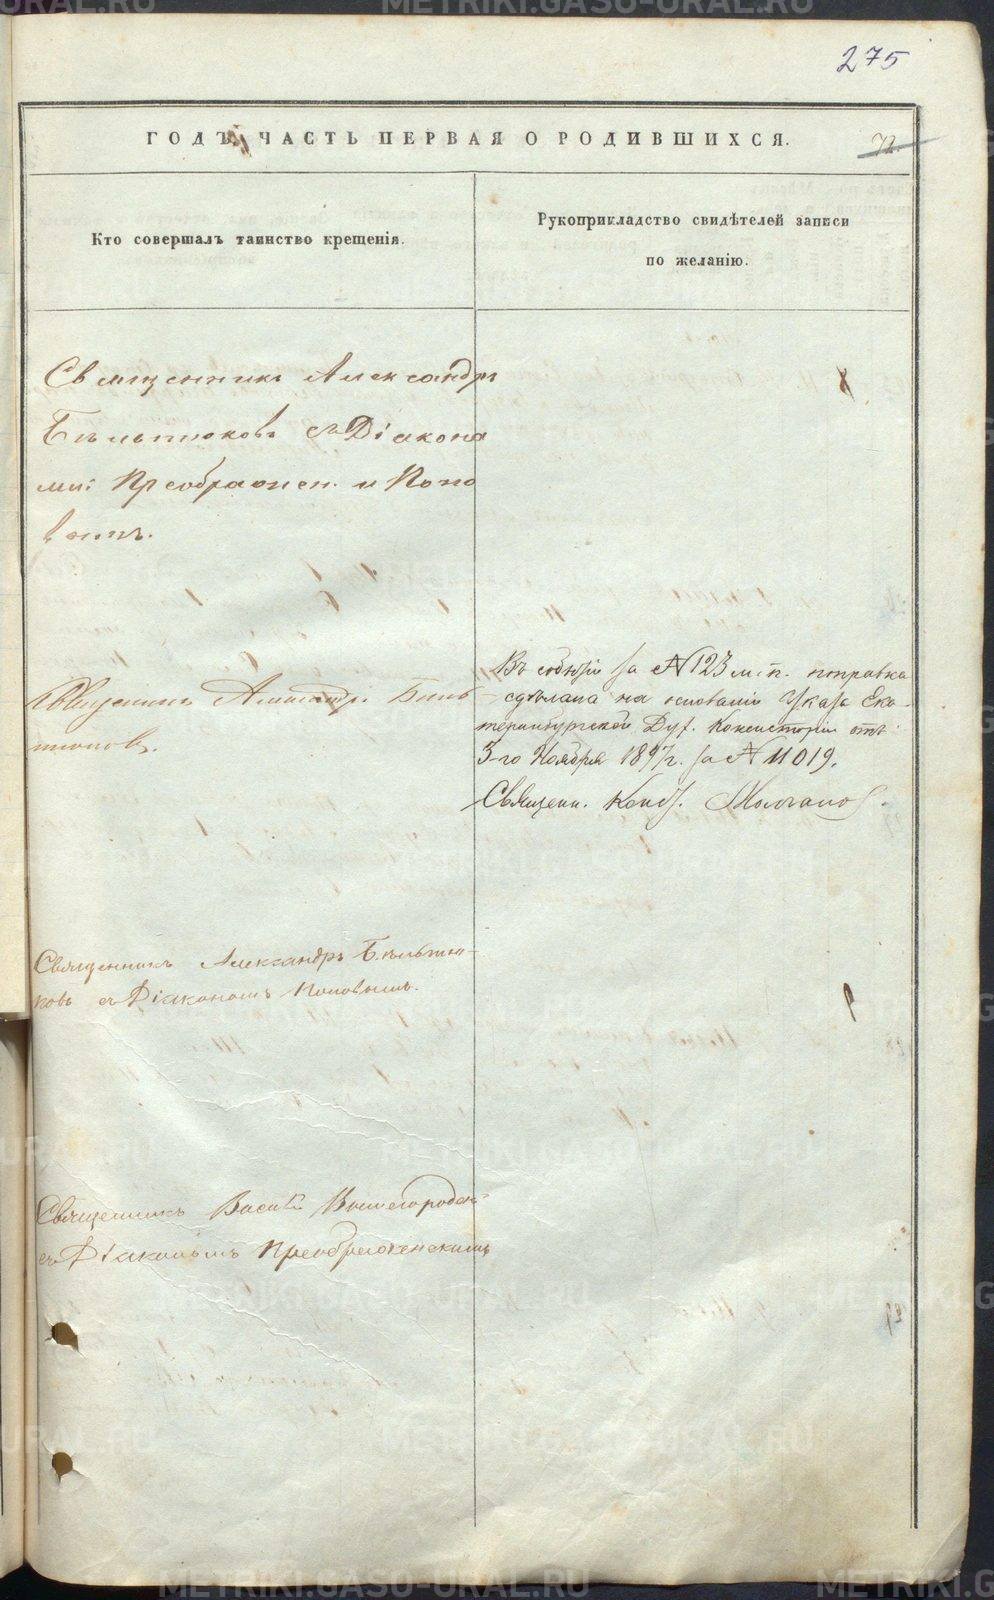 275
ГОДЪ, ЧАСТЬ ПЕРВАЯ О РОДИВШИХСЯ.
72.
Кто совершалъ таинство крещенія.
Рукоприкладство свидѣтелей записи
по желанію.
Священникъ Александръ
Бѣльтюковъ съ Діакона
ми: Преображен. и Попо
вымъ.
Священникъ Александръ Бѣль
тюковъ.
Въ событіи за № 123 м. п. поправка
сдѣлана на основаніи Указа Ека-
теринбургской Дух. Консисторіи отъ
3-го Ноября 1897 г. за № 11019.
Священн. Молчановъ.
Священникъ Александръ Бѣльтю-
ковъ съ Діакономъ Поповымъ.
Священникъ Василій
съ Діакономъ Преображенскимъ
METRIKI.GASO-URAL.RU